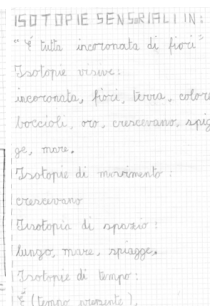 ISOTOPIE SENSORIALI IN:
"È tutta incoronata di fiori"
Isotopie visive:
incoronata, fiori, terra, colore
boccioli, oro, crescevano, spiag
ge, mare,
Isotopie di movimento:
crescevano
Isotopia di spazio:
lungo, mare, spiagge,
Isotopie di tempo:
È (tempo presente),